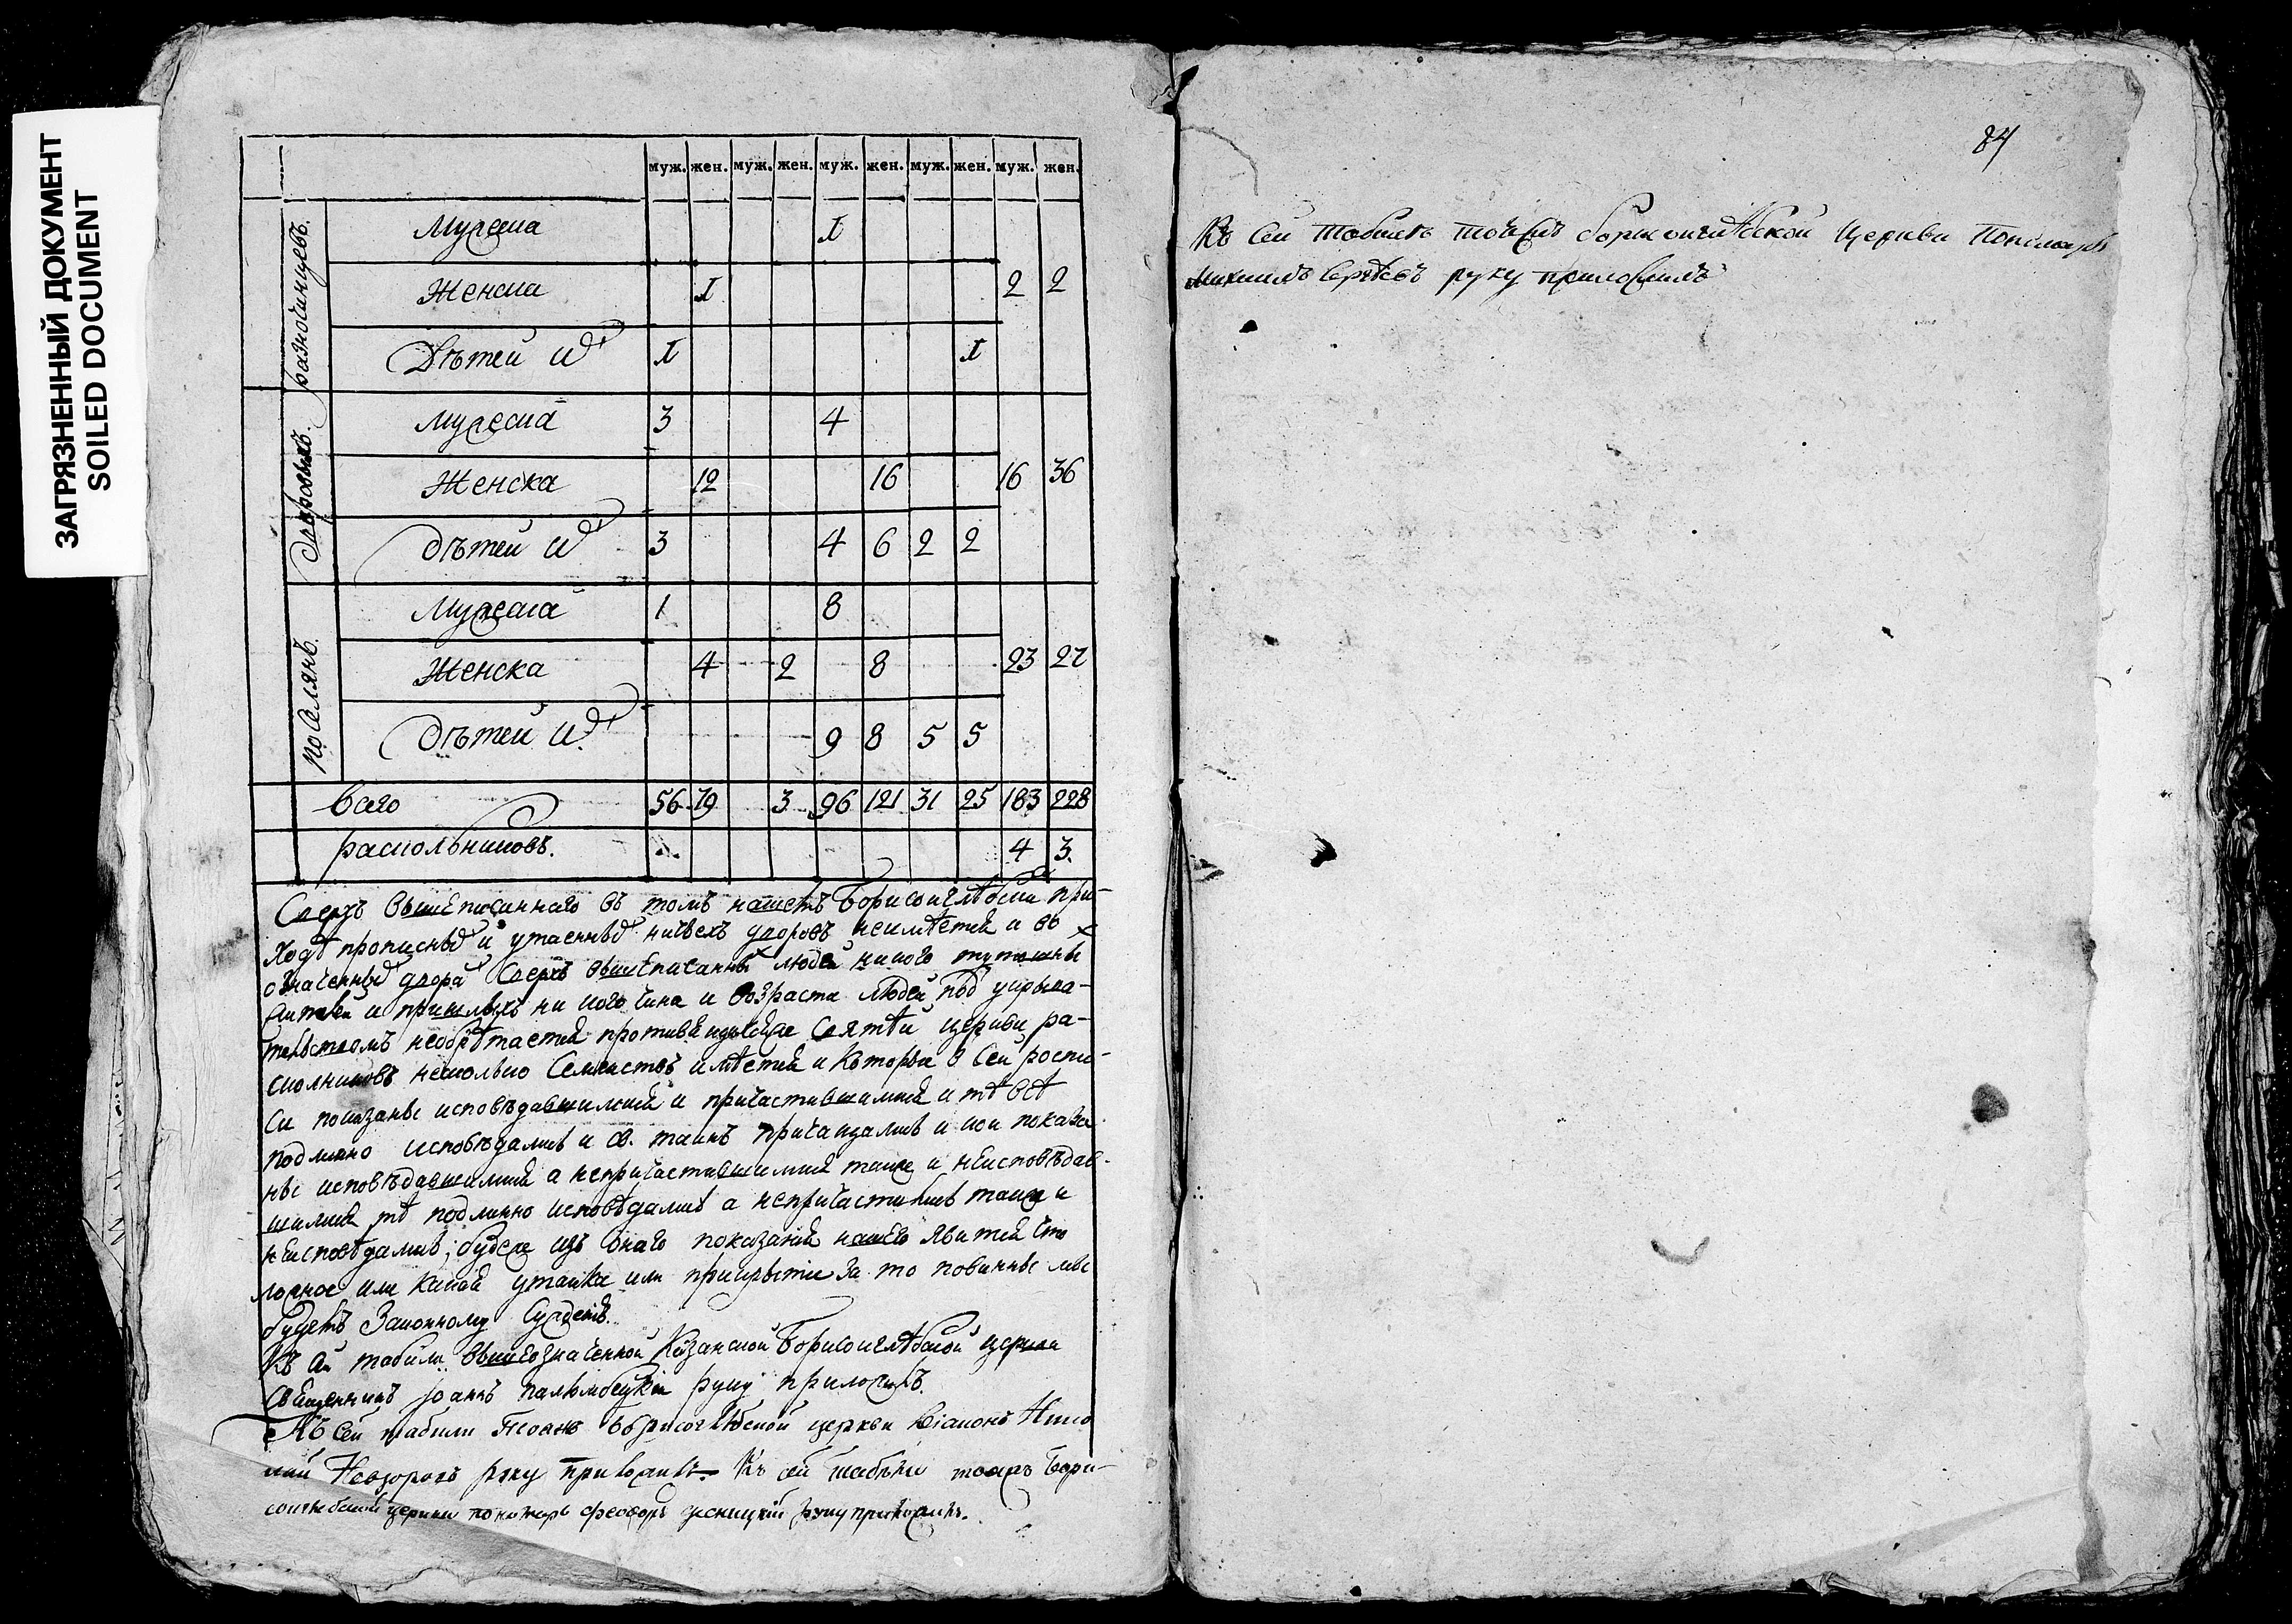 ЗАГРЯЗНЕННЫЙ ДОКУМЕНТ
SOILED DOCUMENT
муж. жен. муж. жен. муж. жен. муж. жен. муж. жен.
разночинцевъ.
Мужеска 1
Женска 1 2 2
Дѣтей ихъ 1 1
дворовыхъ.
Мужеска 3 4
Женска 12 16 16 36
дѣтей ихъ 3 4 6 2 2
поселянъ.
Мужеска 1 8
Женска 4 2 8 23 27
дѣтей ихъ 9 8 5 5
всего 56 79 3 96 121 31 25 183 228
раскольниковъ. 4 3.
Сверхъ вышеписаннаго въ томъ нашемъ Борисоглѣбскомъ при-
ходѣ прописныхъ и утаенныхъ ничьихъ дворовъ неимѣется и во
означенныхъ дворахъ сверхъ вышеписанныхъ людей никого тутошныхъ
и пришлыхъ ни кого чина и возраста людей подъ укрыва-
тельствомъ необрѣтается противящихся святѣй церкви ра-
скольниковъ несколько семействъ имѣется и которыя в сей роспи-
си показаны исповѣдавшимися и причастившимися и тѣ всѣ
подлинно исповѣдались и св. таинъ причащались и кои показа-
ны исповѣдавшимися а непричастившимися также и неисповѣдав-
шимися тѣ подлинно исповѣдались а непричастились также и
неисповѣдались; буде же изъ онаго показанія нашего явится что
ложное или какая утайка или прикрытіе за то повинны мы
будемъ законному сужденію.
Къ сей табели вышеозначенной Казанской Борисоглѣбской церкви
священникъ Іоаннъ руку приложилъ.
Къ сей табели тоя жъ Борисоглѣбской церкви діаконъ Нико
лай Невзоровъ руку приложилъ. Къ сей табели тояжъ Бори-
соглѣбской церкви пономарь Феодоръ руку приложилъ.
84
Къ сей табели тоя жъ борисоглѣбской церкви пономарь
михаилъ руку приложилъ